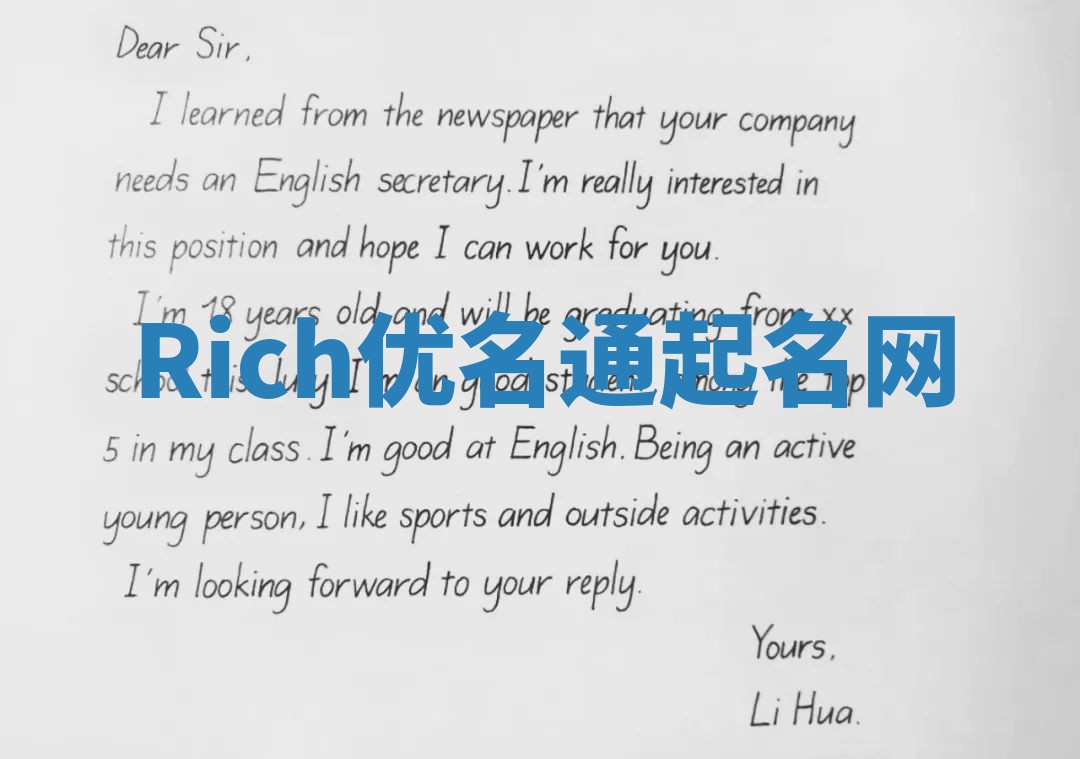 Dear Sir,
I learned from the newspaper that your company
needs an English secretary. I'm really interested in
this position and hope I can work for you.
I'm 18 years old and will be graduating from xx
Rich优名通起名网
school this July. I'm an good student, among the top
5 in my class. I'm good at English. Being an active
young person, I like sports and outside activities.
I'm looking forward to your reply.
Yours,
Li Hua.